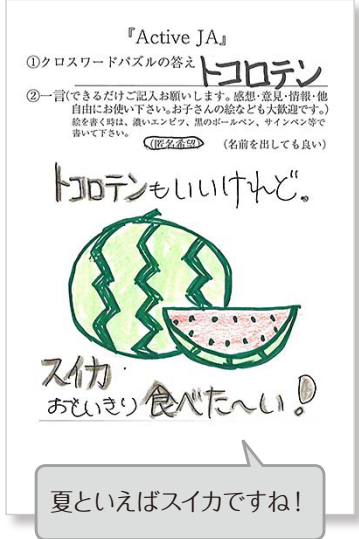 『Active JA』
①クロスワードパズルの答え トコロテン
②一言(できるだけご記入お願いします。感想・意見・情報・他
自由にお使い下さい。お子さんの絵なども大歓迎です。)
絵を書く時は、濃いエンピツ、黒のボールペン、サインペン等で
書いて下さい。
(匿名希望) (名前を出しても良い)
トコロテンもいいけれど。
スイカ
おもいきり食べた〜い!
夏といえばスイカですね!